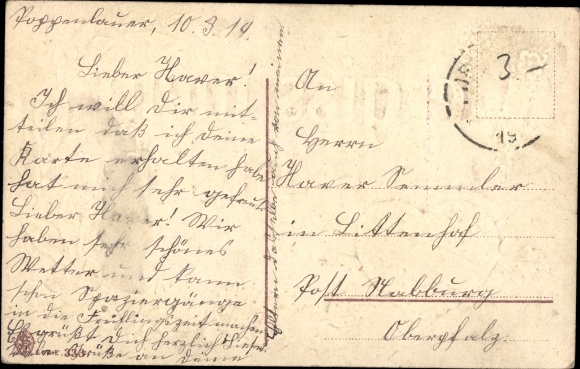 Poppenlauer, 10.3.19.
Lieber Xaver!
Ich will Dir mit-
teilen daß ich deine
Karte erhalten habe
hat mich sehr gefreut
Lieber Xaver! Wir
haben sehr schönes
Wetter und kann
schon Spaziergänge
in die Frühlingszeit machen
Es grüßt Dich herzlich
Viele Grüße an deine
von meinen
An
Herrn
Xaver
in Littenhof
Post Nabburg
Oberpfalz.
3.-
19